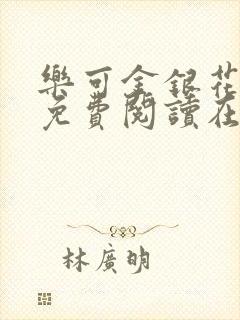 樂可金銀花
免費閱讀在
林廣明